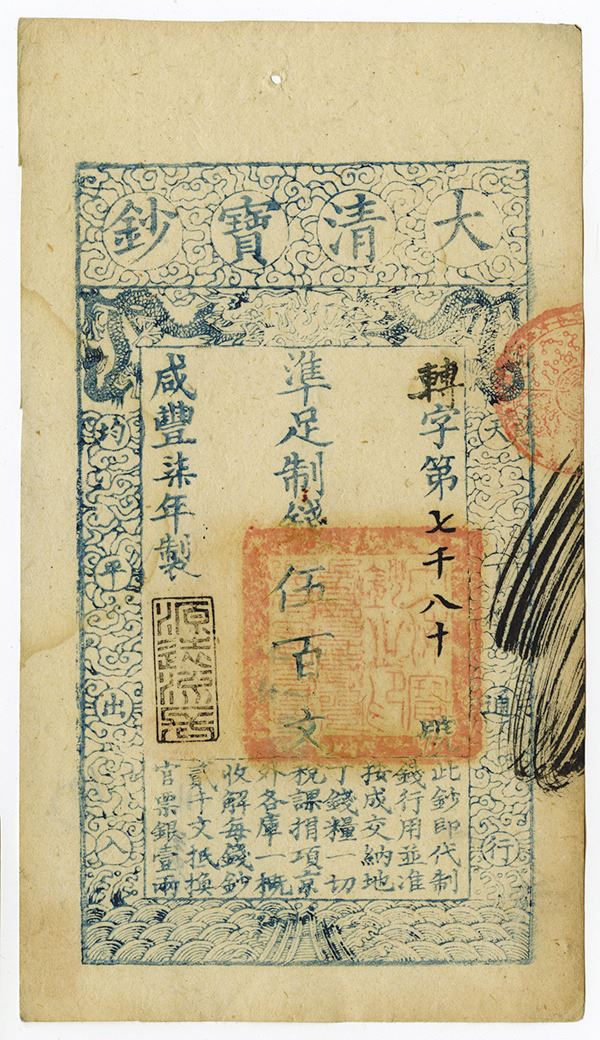 大清寶鈔
天下通行
均平出入
轉字第七千八十號
準足制錢伍百文
咸豐柒年製
源遠流長
此鈔即代制
錢行用並准
按成交納地
丁錢糧一切
稅課捐項京
外各庫一概
收解每錢鈔
貳千文抵換
官票銀壹兩